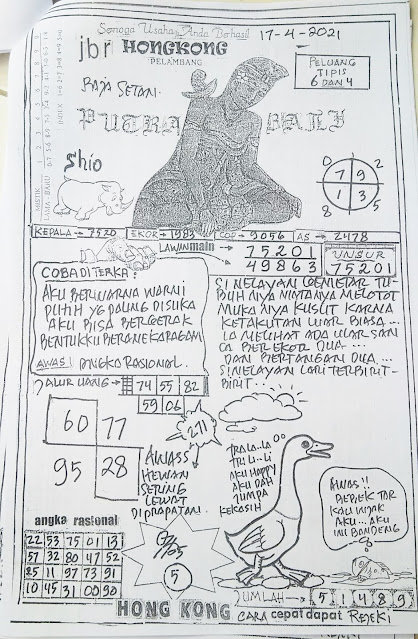 Semoga Usaha Anda Berhasil
17-4-2021
jbr HONGKONG
PELAMBANG
PELUANG
TIPIS
6 DAN 4
RAJA SETAN.
PUTRA BALI
Shio
0 2
7 9
1 3
8 5
KEPALA → 7520 EKOR → 1983 COP → 9056 AS → 2478
LAWAN main → 75201
49863
UNSUR
75201
COBA DITERKA :
AKU BERWARNA WARNI
PUTIH YG PALING DISUKA
AKU BISA BERGERAK
BENTUKKU BERANEKARAGAM
AWAS! ANGKA RASIONAL.
SI NELAYAN GEMETAR TU-
BUH NYA MATANYA MELOTOT
MUKA NYA KUSUT KARNA
KETAKUTAN LUAR BIASA...
IA MELIHAT ADA ULAR SAN
CA BEREKOR DUA...
DAN BERTANGAN DUA...
SI NELAYAN LARI TERBIRIT-
BIRIT...
JALUR UANG → 74 55 82
59 06
60 77
95 28
271
AWASS
HEWAN
SERING
LEWAT
DIPRAPATAN.
TRALA..LA
TRI LI..LI
AKU HAPPY
AKU DAH
JUMPA
KEKASIH
AWAS!!
BEBEK TAR
KAU INJAK
AKU...AKU
INI BANDENG
angka rasional
22 53 75 01 13
57 32 80 47 52
85 11 97 73 91
10 45 31 00 90
5
JUMLAH → 5 1 4 8 9
HONG KONG CARA cepat dapat REJEKI